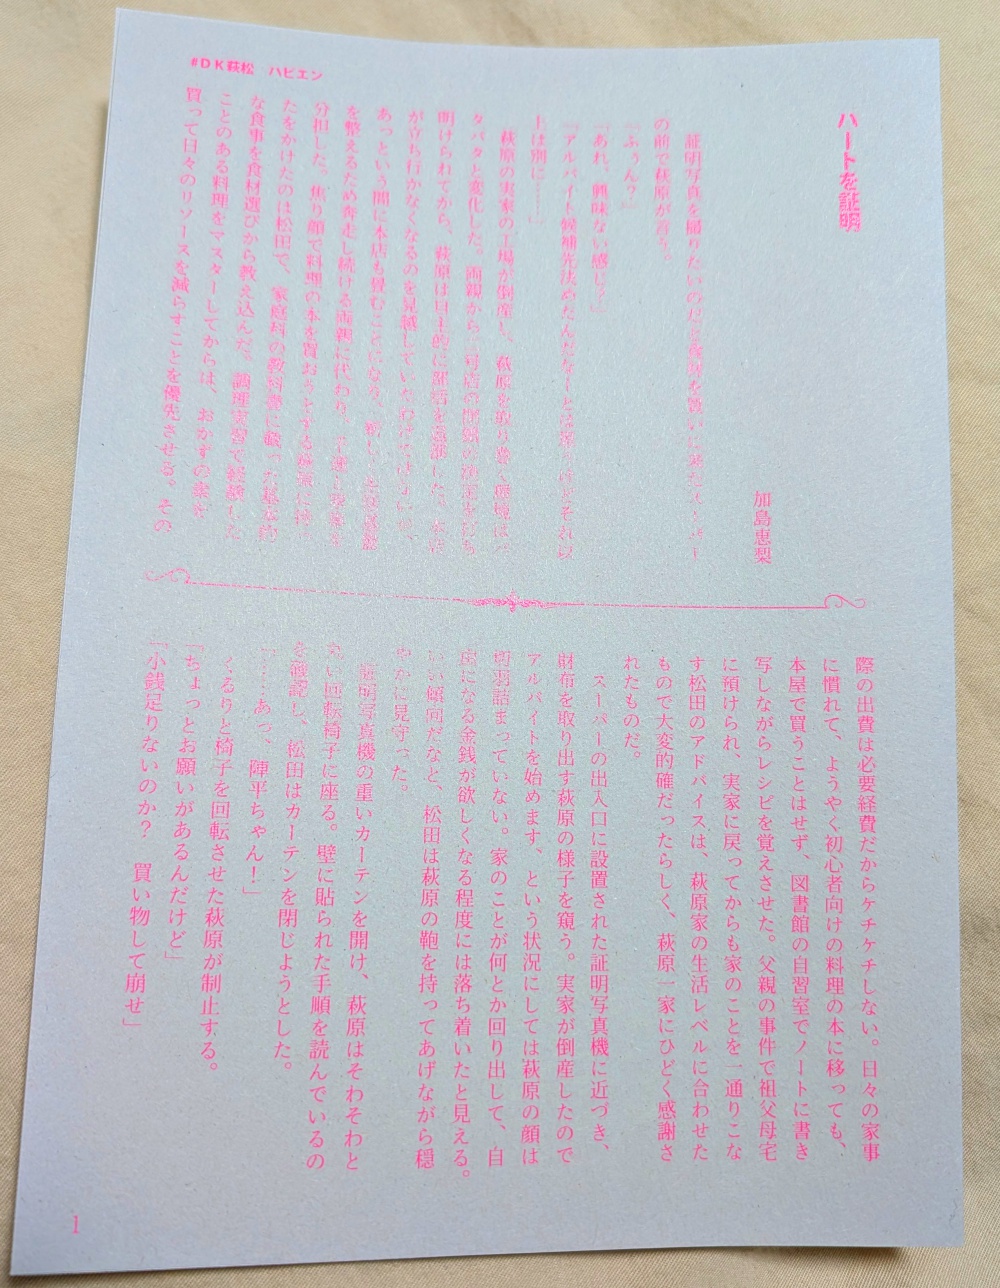 #DK萩松 ハピエン
ハートを証明
加島恵梨
証明写真を撮りたいのだと
の前で萩原が言う。
「ふぅん？」
「あれ、興味ない感じ？」
「アルバイト候補先決めたんだなーとは思うけどそれ以
上は別に……」
萩原の実家の工場が倒産し、萩原を取り巻く環境は
タバタと変化した。両親から二号店の
明けられてから、萩原は自主的に部活を
が立ち行かなくなるのを見越していたわけではないが、
あっという間に本店も畳むことになり、新しい生活基盤
を整えるため奔走し続ける両親に代わり、
分担した。焦り顔で料理の本を買おうとする萩原に待っ
たをかけたのは松田で、家庭科の教科書に載った基本的
な食事を食材選びから教え込んだ。調理実習で経験した
ことのある料理をマスターしてからは、おかずの素を
買って日々のリソースを減らすことを優先させる。その
際の出費は必要経費だからケチケチしない。日々の家事
に慣れて、ようやく初心者向けの料理の本に移っても、
本屋で買うことはせず、図書館の自習室でノートに書き
写しながらレシピを覚えさせた。父親の事件で祖父母宅
に預けられ、実家に戻ってからも家のことを一通りこな
す松田のアドバイスは、萩原家の生活レベルに合わせた
もので大変的確だったらしく、萩原一家にひどく感謝さ
れたものだ。
スーパーの出入口に設置された証明写真機に近づき、
財布を取り出す萩原の様子を窺う。実家が倒産したので
アルバイトを始めます、という状況にしては萩原の顔は
切羽詰まっていない。家のことが何とか回り出して、自
由になる金銭が欲しくなる程度には落ち着いたと見える。
いい傾向だなと、松田は萩原の鞄を持ってあげながら穏
やかに見守った。
証明写真機の重いカーテンを開け、萩原はそわそわと
丸い回転椅子に座る。壁に貼られた手順を読んでいるの
を確認し、松田はカーテンを閉じようとした。
「……あっ、陣平ちゃん！」
くるりと椅子を回転させた萩原が制止する。
「ちょっとお願いがあるんだけど」
「小銭足りないのか？　買い物して崩せ」
1